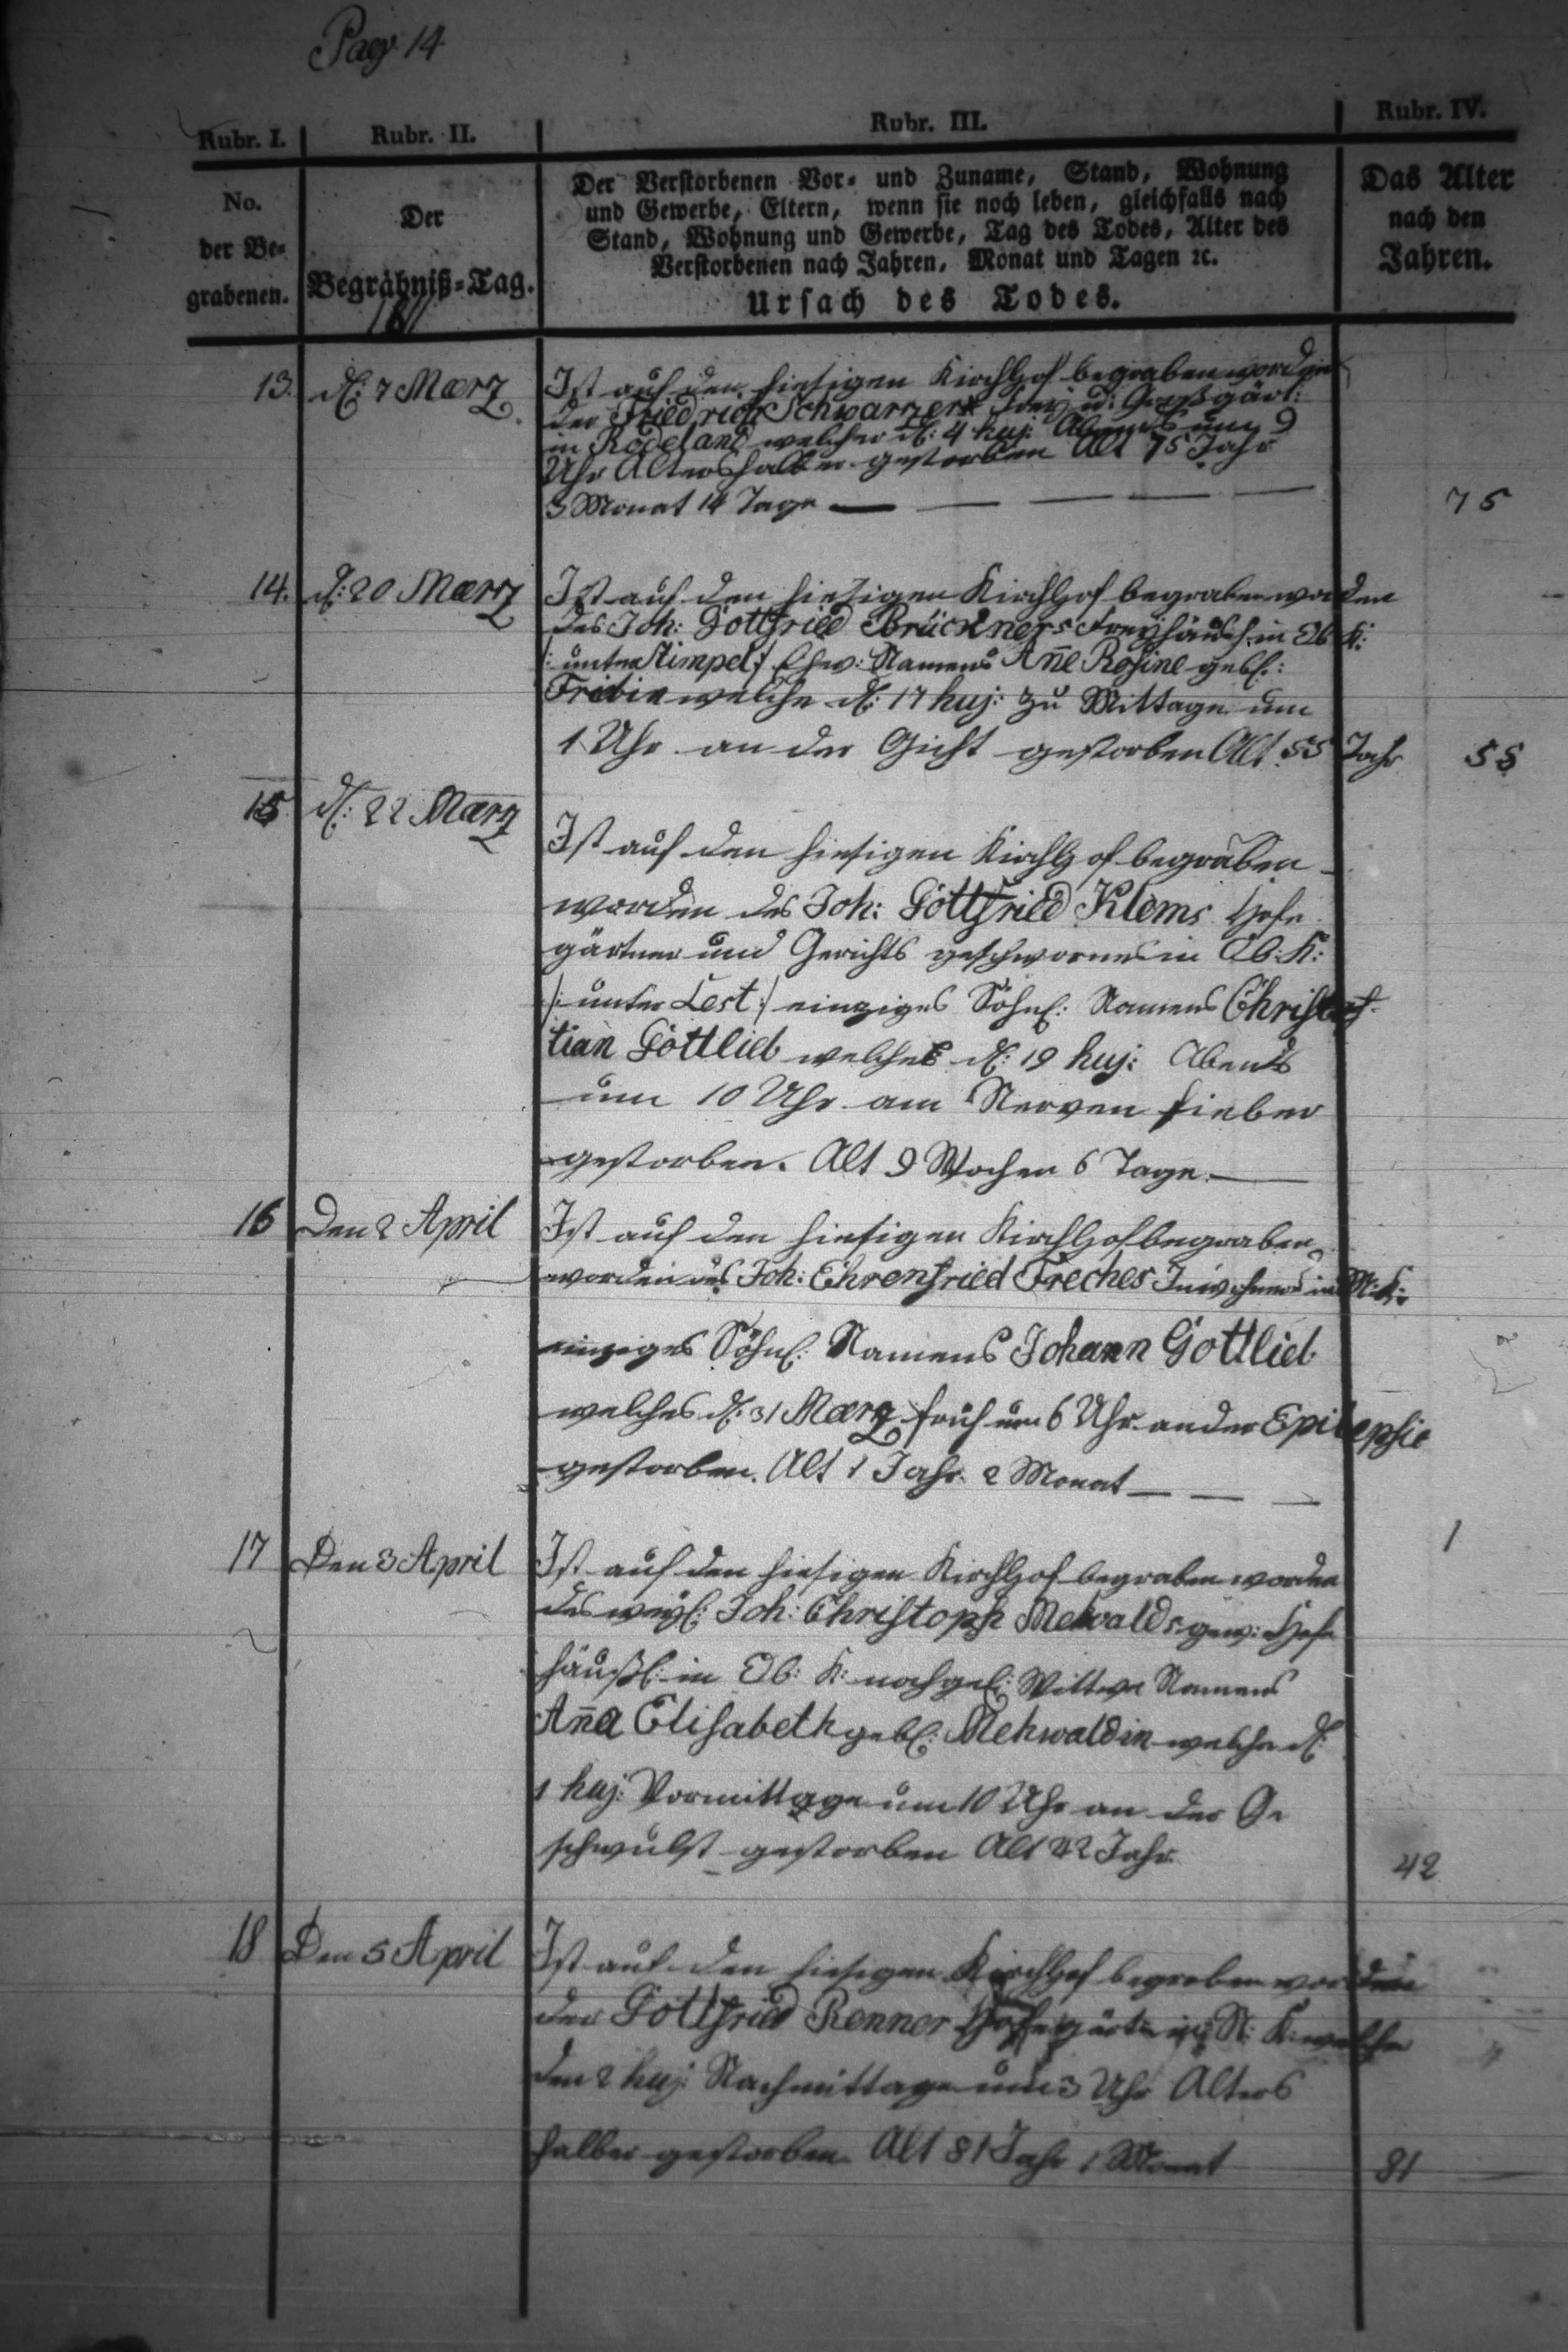 Pag. 14
Rubr. I. Rubr. II. Rubr. III. Rubr. IV.
No. der Be- grabenen.
Der Begräbniß-Tag.
1811
Der Verstorbenen Vor- und Zuname, Stand, Wohnung
und Gewerbe, Eltern, wenn sie noch leben, gleichfalls nach
Stand, Wohnung und Gewerbe, Tag des Todes, Alter des
Verstorbenen nach Jahren, Monat und Tagen ꝛc.
Ursach des Todes.
Das Alter
nach den
Jahren.
13. d: 7 Maerz Ist auf den hiesigen Kirchhof begraben worden
der Friedrich Schwarzer Frey u: Großgärt:
in Rodeland welcher d: 4 huj: Abends um 9
Uhr Altershalber gestorben Alt 75 Jahr
3 Monat 14 Tage 75
14. d: 20 Maerz Ist auf den hiesigen Kirchhof begraben worden
des Joh: Gottfried Brückners Freyhäusl: in Ob: K:
/: unter Stimpel :/ Ehew: Namens Añe Rosine geb:
welche d: 17 huj: zu Mittage um
1 Uhr an der Gicht gestorben Alt 55 Jahr 55
15 d: 22 Maerz
Ist auf den hiesigen Kirchhof begraben
worden des Joh: Gottfried Klems Hofe
gärtner und Gerichts geschwornes in Ob: K:
/: unter Lest :/ einziges Söhnl: Namens Chris
tian Gottlieb welches d: 19 huj: Abends
um 10 Uhr am Nerven fieber
gestorben. Alt 9 Wochen 6 Tage.
16 Den 2 April Ist auf den hiesigen Kirchhof begraben
worden des Joh: Ehrenfried Freches Inwohners in N: K:
einziges Söhnl: Namens Johann Gottlieb
welches d: 31 Maerz früh um 6 Uhr an der Epilepsie
gestorben. Alt 1 Jahr 2 Monat
1
17 Den 3 April Ist auf den hiesigen Kirchhof begraben worden
des weyl: Joh: Christoph Mehwalds gew: Hofe
häusl: in Ob: K: nachgel: Wittwe Namens
Aña Elisabeth geb: Mehwaldin welche d:
1 huj: Vormittage um 10 Uhr an der Ge
schwulst gestorben Alt 42 Jahr
42
18 Den 5 April Ist auf den hiesigen Kirchhof begraben worden
der Gottfried Renner Hofegärt: in N: K: welcher
den 2 huj: Nachmittage um 3 Uhr Alters
halber gestorben. Alt 81 Jahr 1 Monat 81